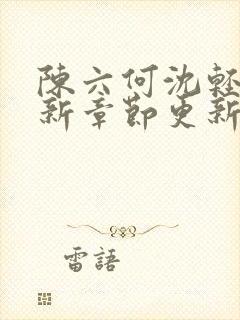 陳六何沈輕
新章節更新
雷語